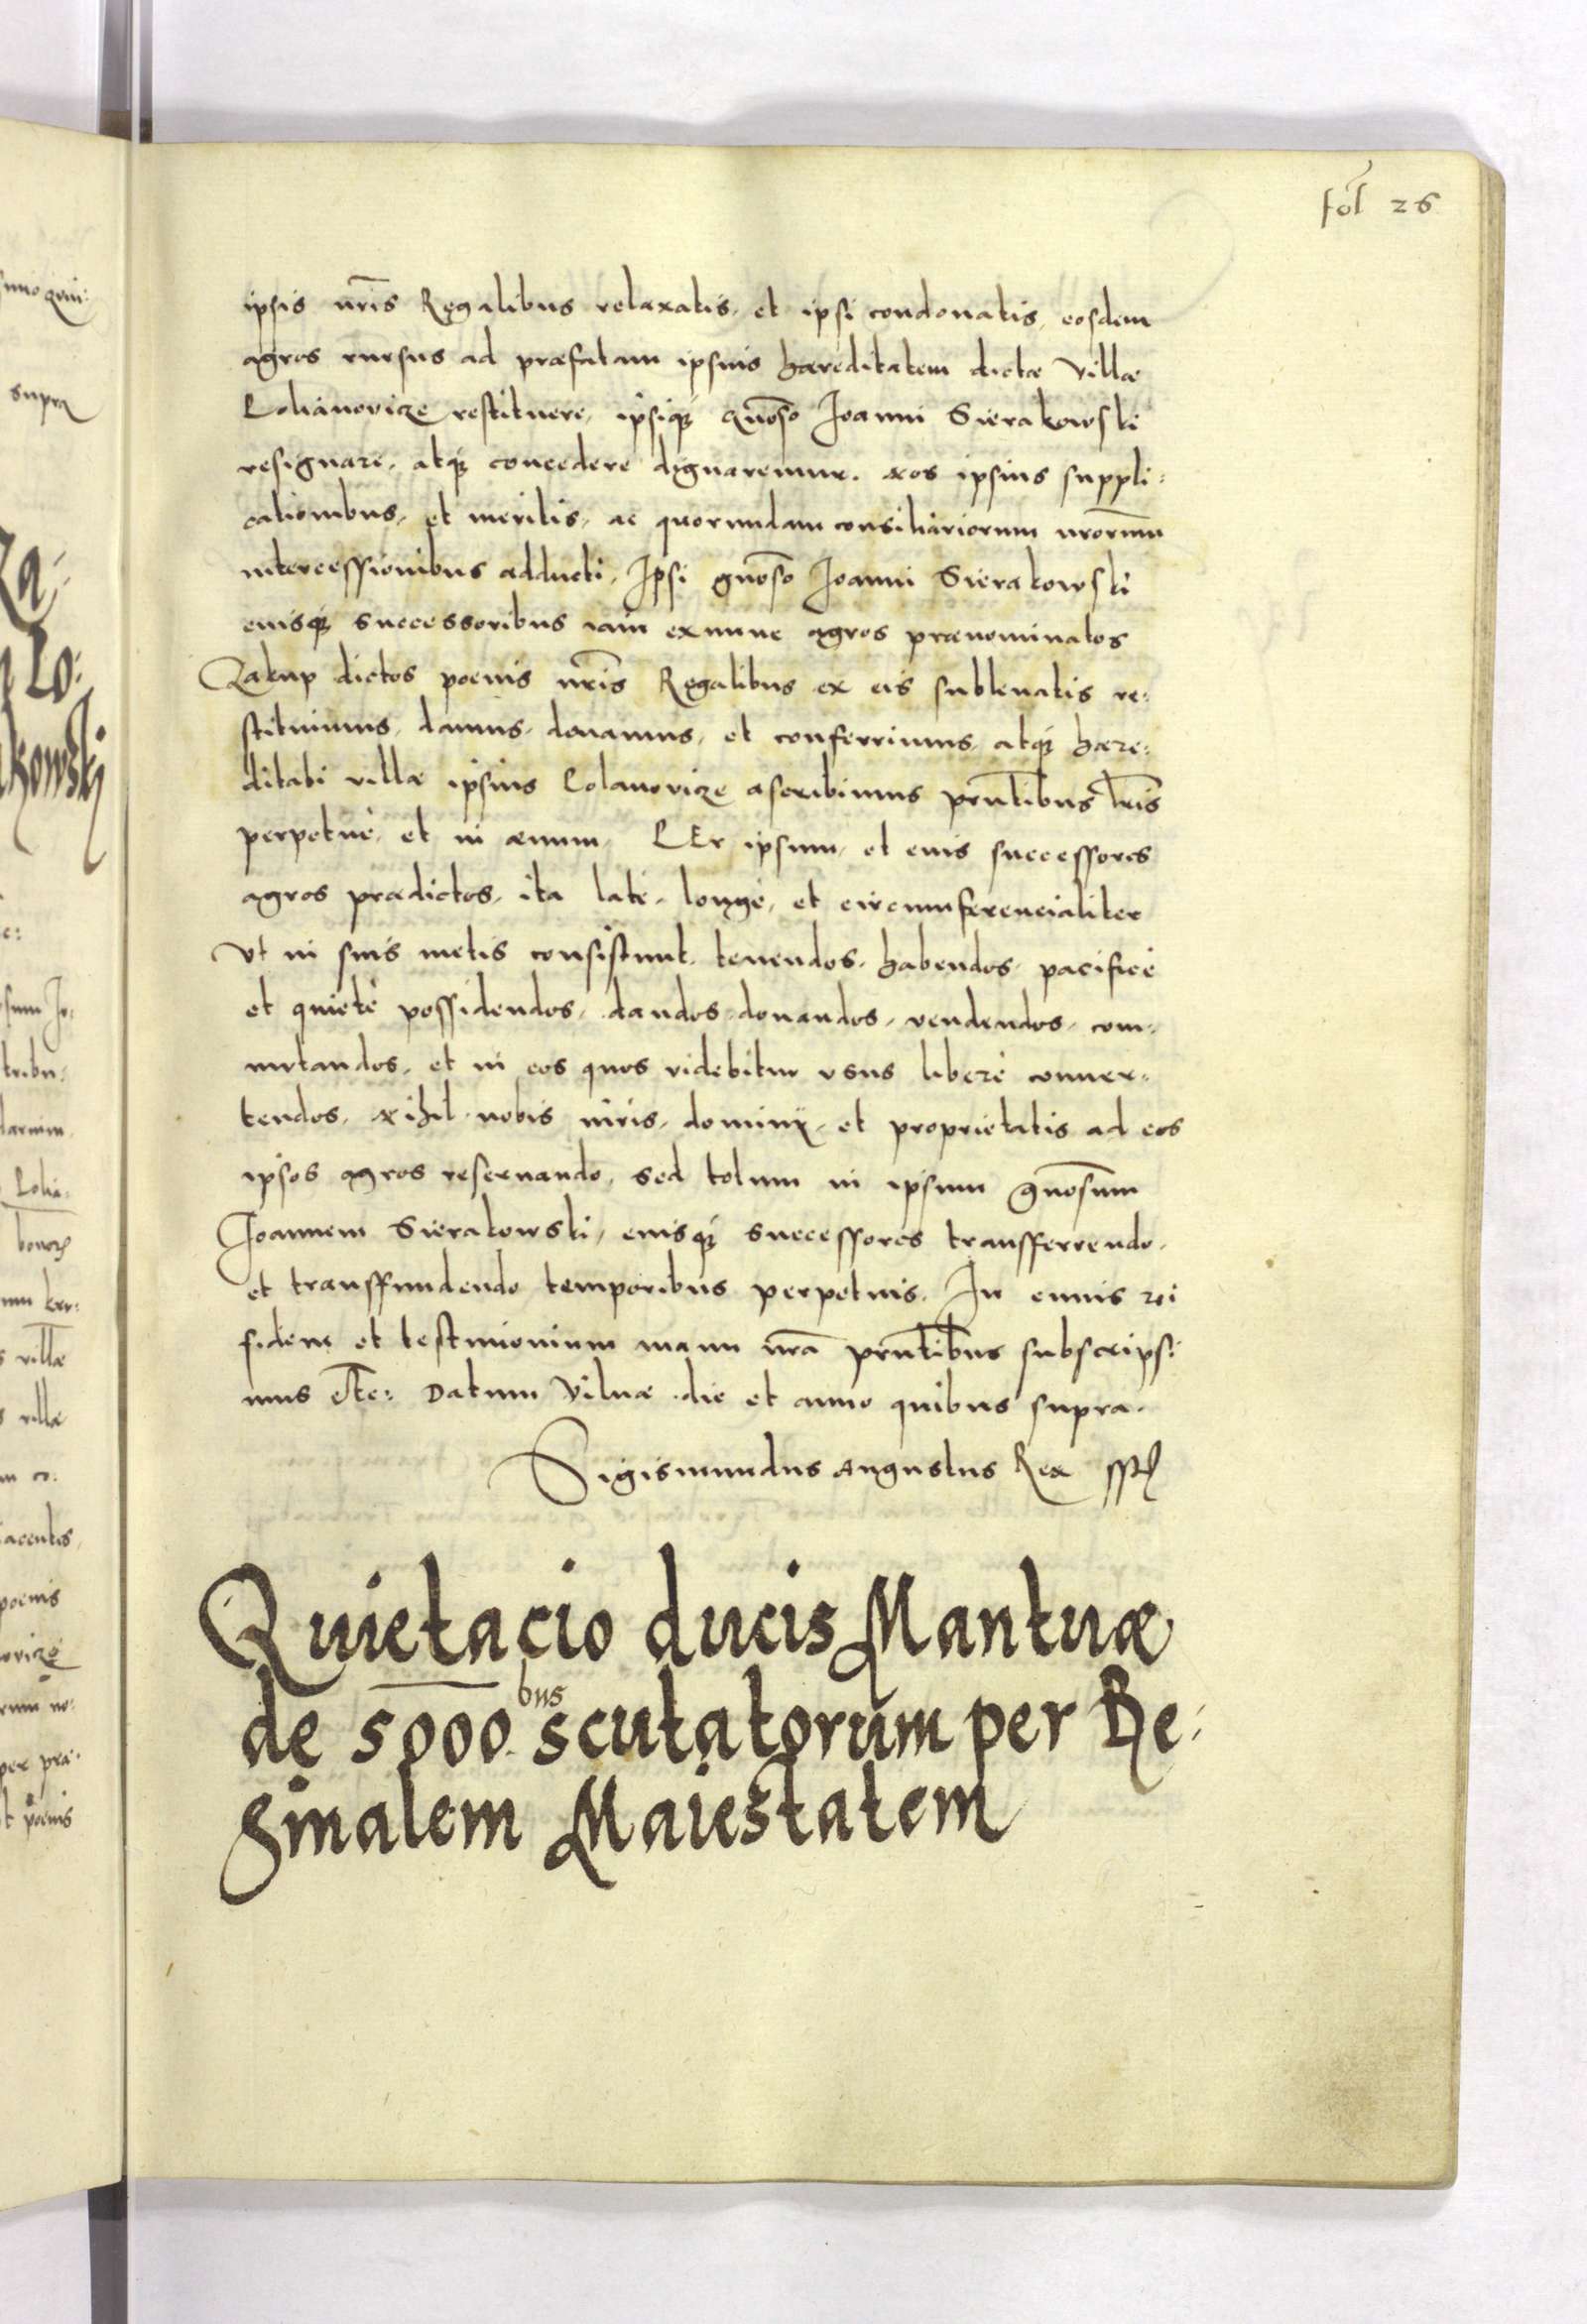 fol 26
ipsis nris Regalibus relaxatis, et ipsi condonatis, eosdem
agros rursus ad præfatam ipsius hæreditatem dictæ Villæ
restituere, ipsiq Gnoso Joanni Sierakowski
resignare, atq concedere dignaremur. Nos ipsius suppli:
cationibus, et meritis, ac quorundam consiliariorum nrorum
intercessionibus adducti, Ipsi gnoso Joanni Sierakowski
eiusq successoribus iam exnunc agros prænominatos
dictos poenis nris Regalibus ex eis subleuatis re:
stituimus, damus, donamus, et conferrimus, atq hære:
ditati villæ ipsius ascribimus prntibus lris
perpetuè, et in æuum, PEr ipsum, et eius successores
agros prædictos, ita latè, longè, et circumferencialiter
Vt in suis metis consistunt, tenendos, habendos, pacificè
et quietè possidendos, dandos, donandos, vendendos, com:
mutandos, et in eos quos videbitur vsus liberè conuer:
tendos, Nihil nobis iuris, dominij, et proprietatis ad eos
ipsos agros reseruando, sed totum in ipsum gnosum
Joannem Sierakowski, eiusq successores transfferrendo,
et transffundendo temporibus perpetuis. In cuius rei
fidem et testimonium manu nra prntibus subscripsi
mus etc: Datum Vilnæ die et anno quibus supra.
Sigismundus Augustus Rex sst
Quietacio ducis Mantuæ
de 5000.bus scutatorum per Re:
ginalem Maiestatem
supra
kowskj
villæ
villæ
poenis